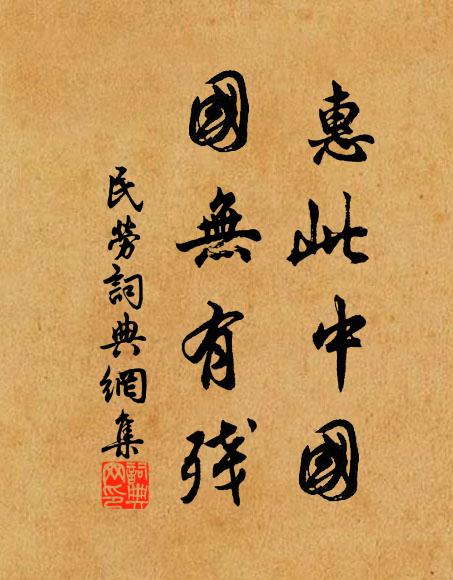 惠此中國
國無有残
民勞詞典網集
詞典網印